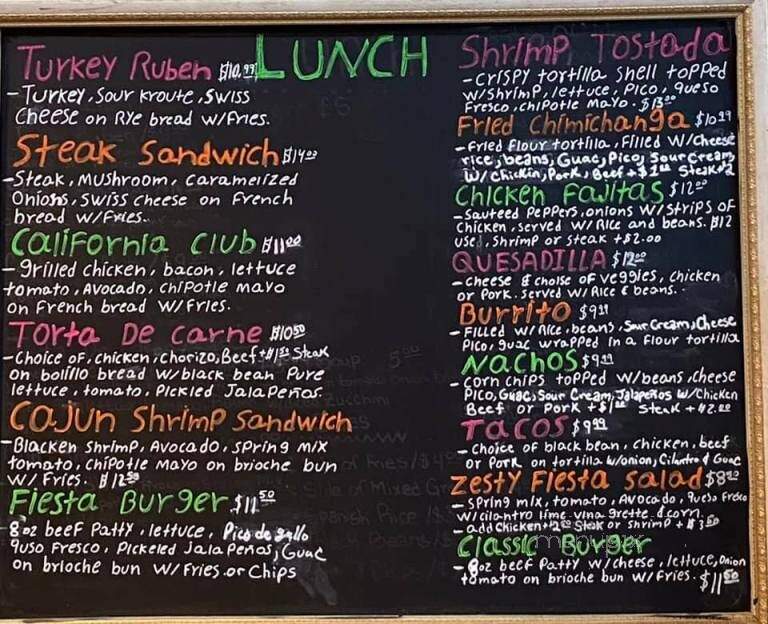 LUNCH
Turkey Ruben $10.99
- Turkey, Sour kroute, Swiss
Cheese on Rye bread w/Fries.
Steak Sandwich $14.00
- Steak, Mushroom, Caramerized
Onions, Swiss cheese on French
bread w/Fries.
California Club $11.00
- grilled chicken, bacon, lettuce
tomato, Avocado, chipotle mayo
on French bread w/Fries.
Torta De Carne $10.50
- Choice of, chicken, chorizo, Beef +$1.00 Steak
on bolillo bread w/black bean Pure
lettuce, tomato, Pickled Jalapeños.
Cajun Shrimp Sandwich
- Blacken Shrimp, Avocado, Spring mix
tomato, Chipotle Mayo on brioche bun
w/ Fries. $12.50
Fiesta Burger $11.50
- 8oz beef Patty, lettuce, Pico de gallo
quso Fresco, Pickeled Jalapeños, Guac
on brioche bun w/Fries or Chips
Shrimp Tostada
- Crispy tortilla shell topped
w/Shrimp, lettuce, Pico, queso
Fresco, chipotle mayo. $13.00
Fried Chimichanga $10.99
- Fried flour tortilla, Filled w/Cheese
rice, beans, Guac, Pico, Sour Cream
w/ Chickin, Pork, Beef +$1.00 Steak +2
Chicken Fajitas $12.00
- Sauteed Peppers, onions w/ Strips of
Chicken, served w/Rice and beans. $12
Use, Shrimp or Steak +$2.00
QUESADILLA $12.00
- Cheese & choise of veggies, chicken
or Pork. Served w/ Rice & beans.
Burrito $9.99
- Filled w/Rice, beans, Sour Cream, Cheese
Pico, guac wrapped in a Flour tortilla
Nachos $9.99
- Corn chips topped w/beans, Cheese
Pico, Guac, Sour Cream, Jalapeños w/Chicken
Beef or Pork +$1.00 Steak +$2.00
Tacos $9.99
- Choice of black bean, chicken, beef
or Pork on tortilla w/onion, Cilantro & Guac
Zesty Fiesta Salad $8.00
- Spring mix, tomato, Avocado, queso Fresco
w/cilantro lime vina grette & corn.
- add Chicken +2.00 Steak or shrimp + $3.50
Classic Burger
- 8oz beef Patty w/cheese, lettuce, Onion
tomato on brioche bun w/ Fries. $11.50